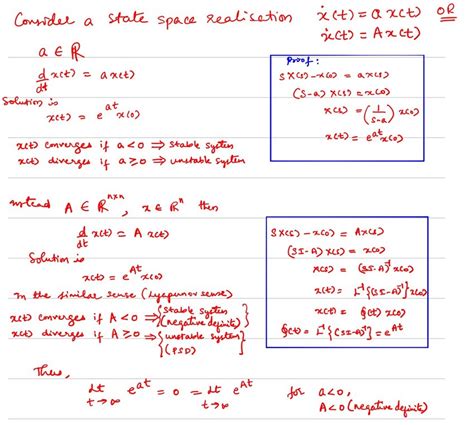 Consider a state space realisation ẋ(t) = a x(t) OR
ẋ(t) = A x(t)
a ∈ ℝ
d/dt x(t) = a x(t)
Solution is
x(t) = e^{at} x(0)
x(t) converges if a < 0 ⇒ stable system
x(t) diverges if a ≥ 0 ⇒ unstable system
Proof:
s X(s) - x(0) = a x(s)
(s-a) x(s) = x(0)
x(s) = (1/(s-a)) x(0)
x(t) = e^{at} x(0)
Instead A ∈ ℝ^{n×n}, x ∈ ℝ^n then
d/dt x(t) = A x(t)
Solution is
x(t) = e^{At} x(0)
In the similar sense (Lyapunov sense)
x(t) converges if A < 0 ⇒ {stable system}
{(negative definite)}
x(t) diverges if A ≥ 0 ⇒ {unstable system}
{(PSD)}
s X(s) - x(0) = A x(s)
(sI-A) x(s) = x(0)
x(s) = (sI-A)^{-1} x(0)
x(t) = L^{-1}{(sI-A)^{-1}} x(0)
x(t) = ϕ(t) x(0)
ϕ(t) = L^{-1}{(sI-A)^{-1}} = e^{At}
Thus,
lt t→∞ e^{at} = 0 = lt t→∞ e^{At} for a<0,
A<0 (negative definite)